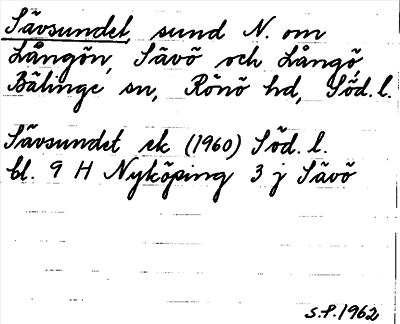 Sävsundet, sund N. om
Långön, Sävö och Långö,
Bälinge sn, Rönö hd, Söd. l.
Sävsundet ek (1960) Söd. l.
bl. 9 H Nyköping 3 j Sävö
S.P. 1962